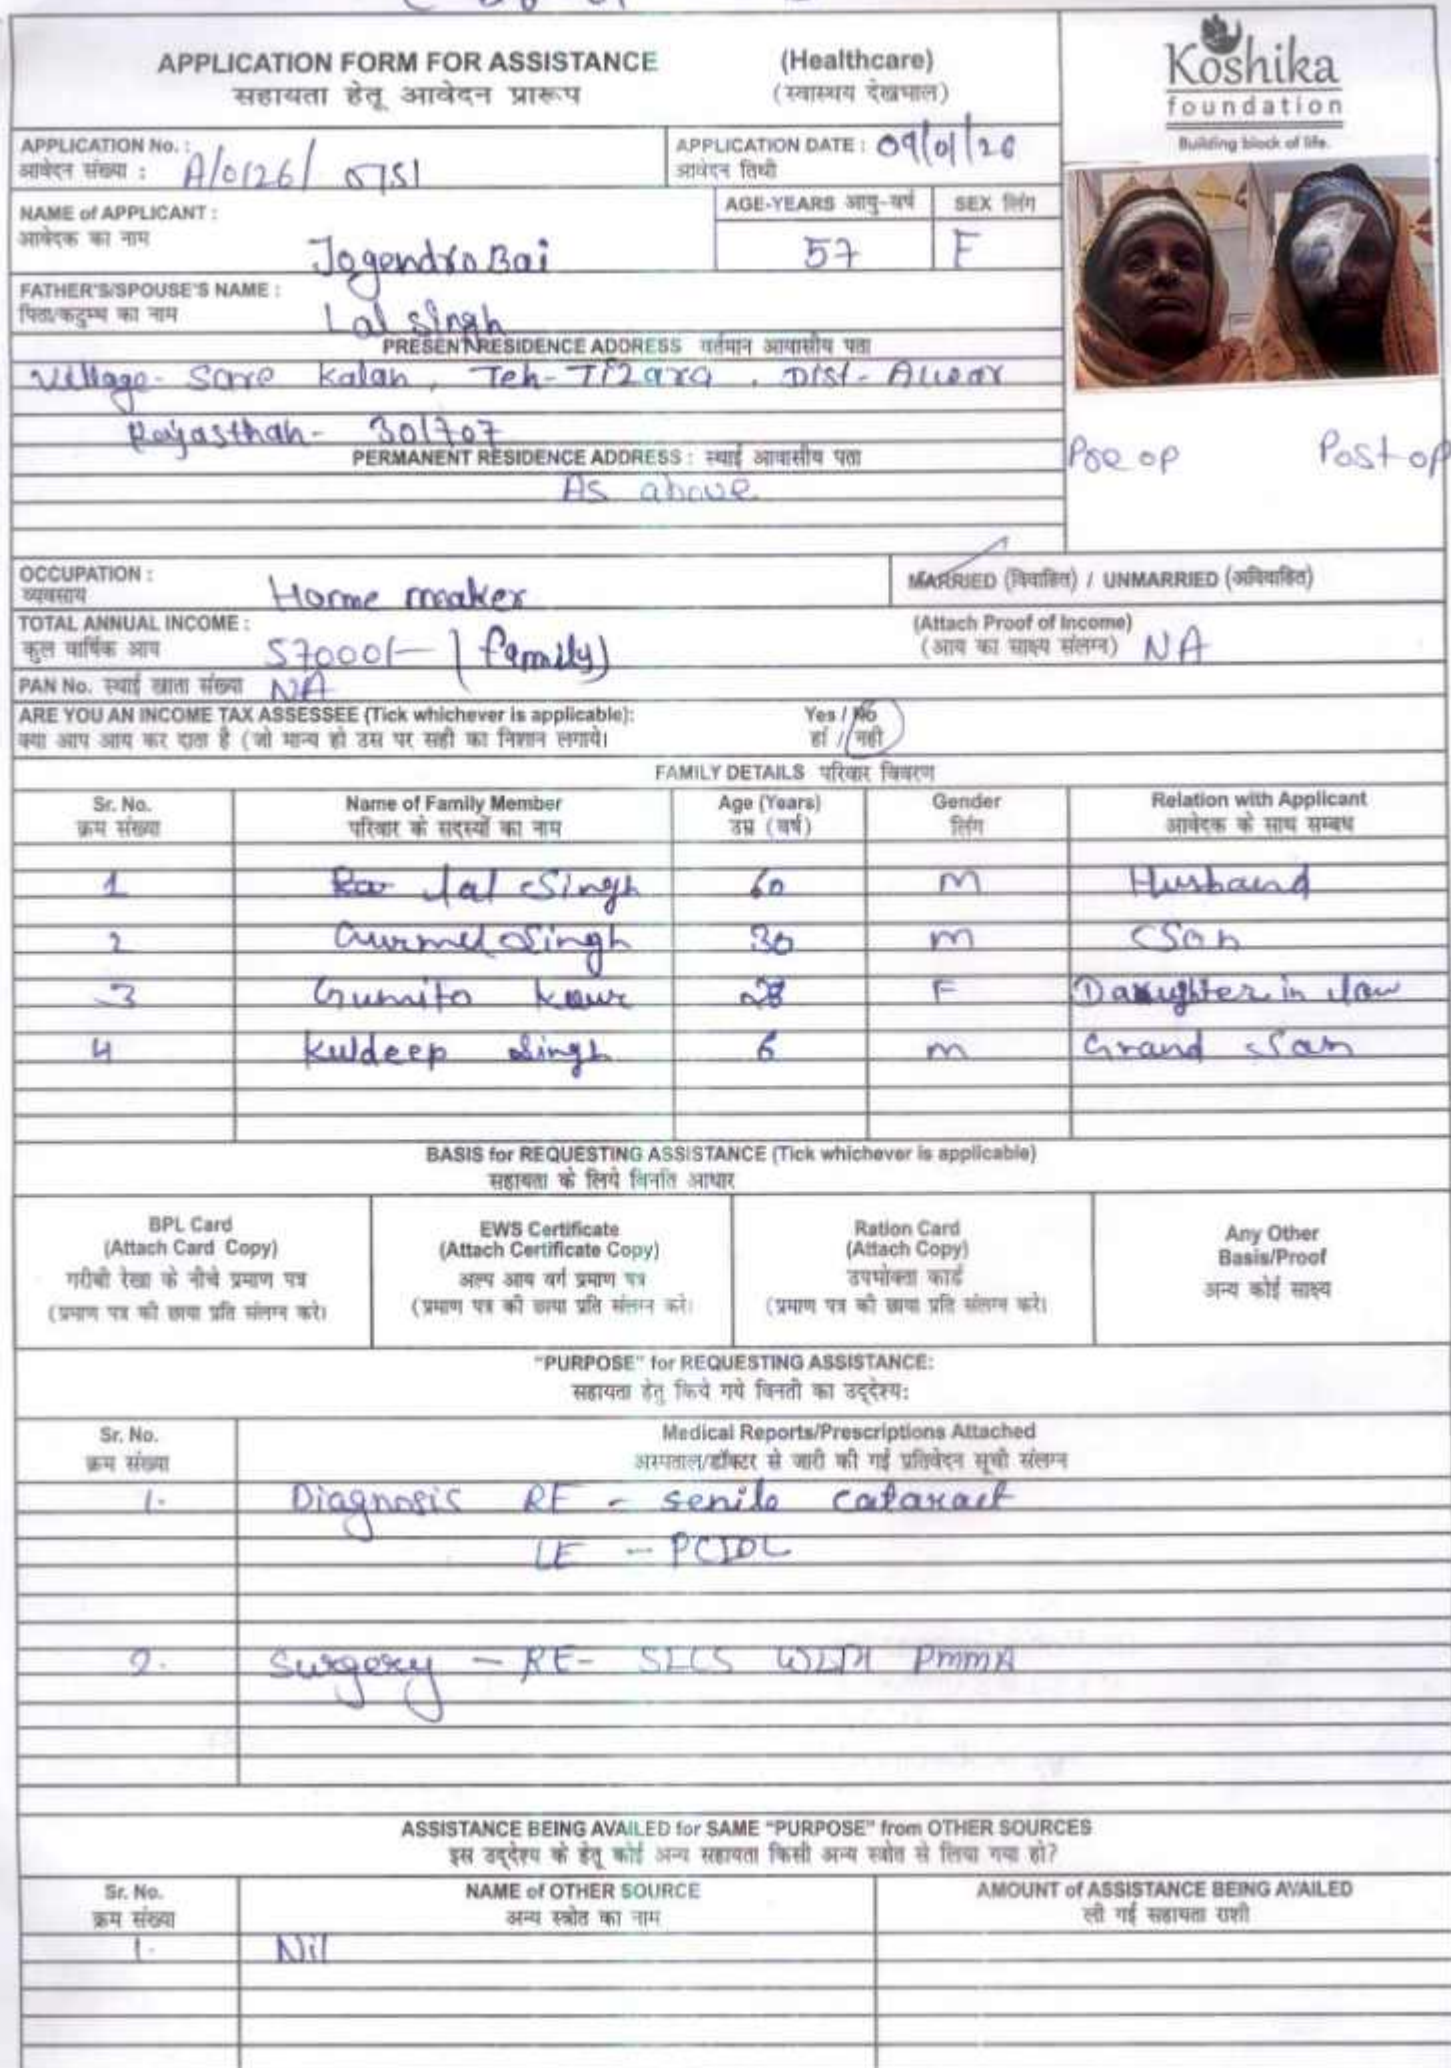 APPLICATION FORM FOR ASSISTANCE (Healthcare)
सहायता हेतू आवेदन प्रारूप (स्वास्थय देखभाल)
Koshika
foundation
Building block of life.
APPLICATION No. :
आवेदन संख्या : A/0126/ 0751
APPLICATION DATE : 09/01/26
आवेदन तिथी
NAME of APPLICANT :
आवेदक का नाम
Jogendro Bai
AGE-YEARS आयु-वर्ष SEX लिंग
57 F
FATHER'S/SPOUSE'S NAME :
पिता/कटुम्ब का नाम
Lal singh
PRESENT RESIDENCE ADDRESS वर्तमान आवासीय पता
Village- Sare Kalan, Teh- Tizara, Dist- Alwar
Rajasthan- 301707
PERMANENT RESIDENCE ADDRESS : स्थाई आवासीय पता
As above
Pre op Post op
OCCUPATION :
व्यवसाय
Home maker
MARRIED (विवाहित) / UNMARRIED (अविवाहित)
TOTAL ANNUAL INCOME :
कुल वार्षिक आय
57000/- (family)
(Attach Proof of Income)
(आय का साक्ष्य संलग्न) NA
PAN No. स्थाई खाता संख्या NA
ARE YOU AN INCOME TAX ASSESSEE (Tick whichever is applicable): Yes / No
क्या आप आय कर दाता है (जो मान्य हो उस पर सही का निशान लगाये। हां / नही
FAMILY DETAILS परिवार विवरण
Sr. No. Name of Family Member Age (Years) Gender Relation with Applicant
क्रम संख्या परिवार के सदस्यों का नाम उम्र (वर्ष) लिंग आवेदक के साथ सम्बध
1 lal Singh 60 M Husband
2 Gurmel Singh 30 m Son
3 Gumito Kaur 28 F Daughter in law
4 Kuldeep Singh 6 m Grand Son
BASIS for REQUESTING ASSISTANCE (Tick whichever is applicable)
सहायता के लिये विनति आधार
BPL Card
(Attach Card Copy)
गरीबी रेखा के नीचे प्रमाण पत्र
(प्रमाण पत्र की छाया प्रति संलग्न करे।
EWS Certificate
(Attach Certificate Copy)
अल्प आय वर्ग प्रमाण पत्र
(प्रमाण पत्र की छाया प्रति संलग्न करे।
Ration Card
(Attach Copy)
उपभोक्ता कार्ड
(प्रमाण पत्र की छाया प्रति संलग्न करे।
Any Other
Basis/Proof
अन्य कोई साक्ष्य
"PURPOSE" for REQUESTING ASSISTANCE:
सहायता हेतु किये गये विनती का उद्देश्य:
Sr. No. Medical Reports/Prescriptions Attached
क्रम संख्या अस्पताल/डॉक्टर से जारी की गई प्रतिवेदन सूची संलग्न
1. Diagnosis RE - senile cataract
LE - PCIOL
2. Surgery - RE- SICS WITH PMMA
ASSISTANCE BEING AVAILED for SAME "PURPOSE" from OTHER SOURCES
इस उद्देश्य के हेतू कोई अन्य सहायता किसी अन्य स्त्रोत से लिया गया हो?
Sr. No. NAME of OTHER SOURCE AMOUNT of ASSISTANCE BEING AVAILED
क्रम संख्या अन्य स्त्रोत का नाम ली गई सहायता राशी
1. Nil